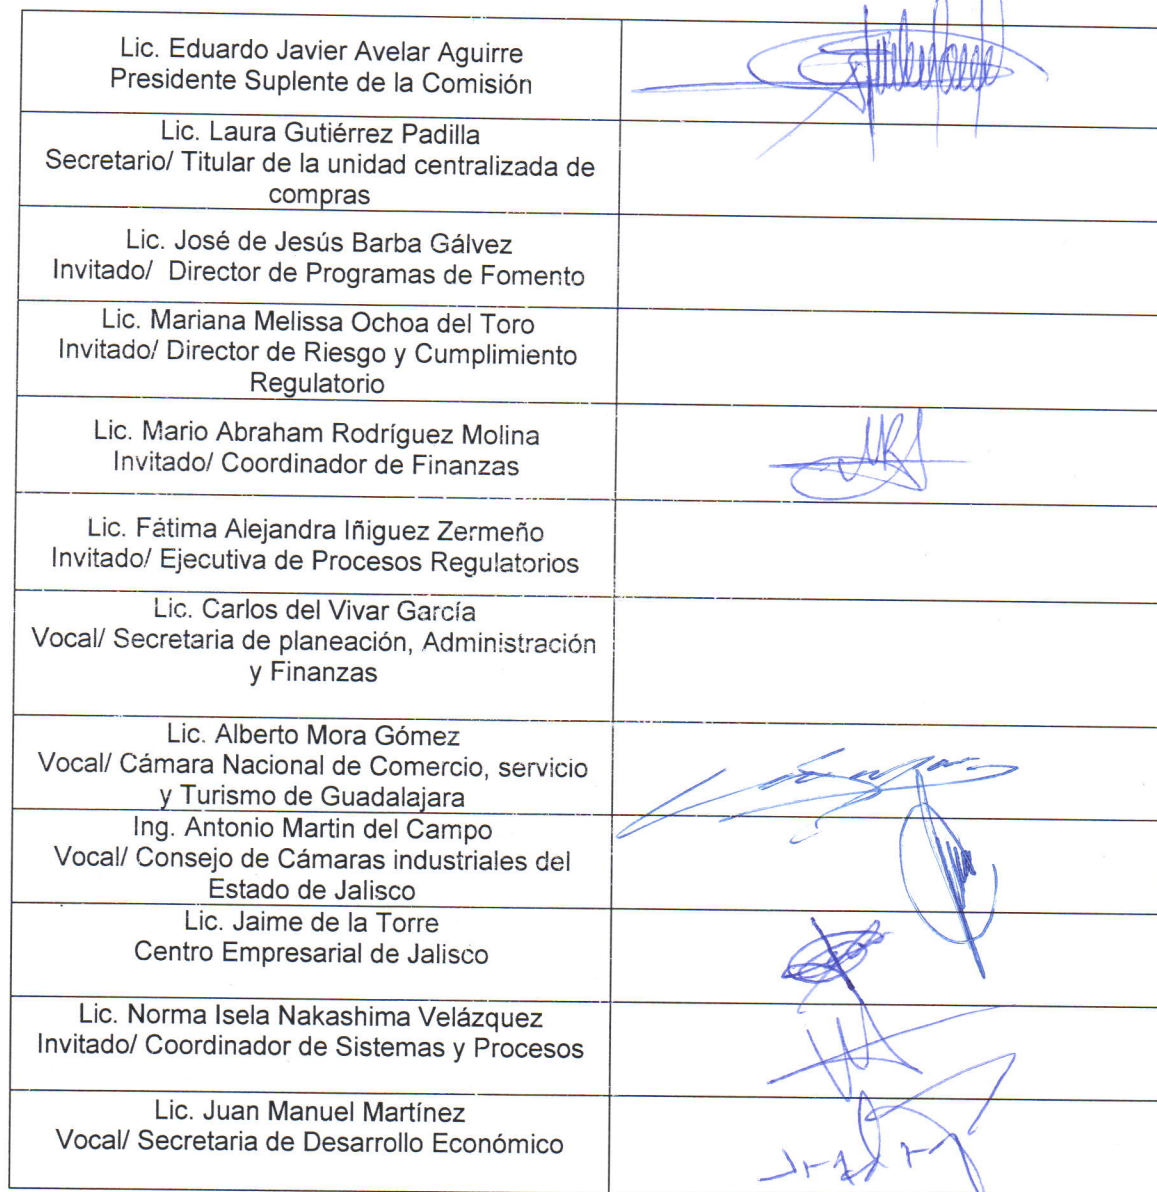 Lic. Eduardo Javier Avelar Aguirre
Presidente Suplente de la Comisión
Lic. Laura Gutiérrez Padilla
Secretario/ Titular de la unidad centralizada de
compras
Lic. José de Jesús Barba Gálvez
Invitado/ Director de Programas de Fomento
Lic. Mariana Melissa Ochoa del Toro
Invitado/ Director de Riesgo y Cumplimiento
Regulatorio
Lic. Mario Abraham Rodríguez Molina
Invitado/ Coordinador de Finanzas
Lic. Fátima Alejandra Iñiguez Zermeño
Invitado/ Ejecutiva de Procesos Regulatorios
Lic. Carlos del Vivar García
Vocal/ Secretaria de planeación, Administración
y Finanzas
Lic. Alberto Mora Gómez
Vocal/ Cámara Nacional de Comercio, servicio
y Turismo de Guadalajara
Ing. Antonio Martin del Campo
Vocal/ Consejo de Cámaras industriales del
Estado de Jalisco
Lic. Jaime de la Torre
Centro Empresarial de Jalisco
Lic. Norma Isela Nakashima Velázquez
Invitado/ Coordinador de Sistemas y Procesos
Lic. Juan Manuel Martínez
Vocal/ Secretaria de Desarrollo Económico